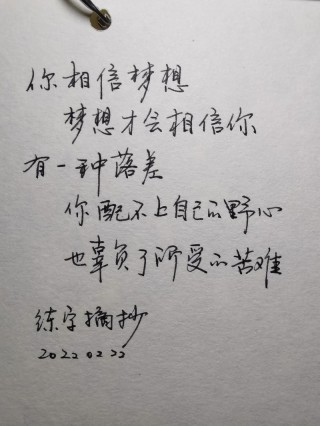 你相信梦想
梦想才会相信你
有一种落差
你配不上自己的野心
也辜负了所受的苦难
练字摘抄
20220222